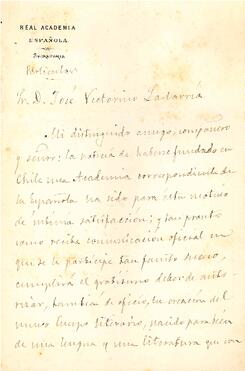 REAL ACADEMIA
ESPAÑOLA.
Secretaría
Particular
Sr. D. José Victorino Lastarria
Mi distinguido amigo, compañero
y señor: la noticia de haberse fundado en
Chile una Academia correspondiente de
la Española ha sido para ésta motivo
de íntima satisfacción; y tan pronto
como reciba comunicación oficial en
que se le participe tan fausto suceso,
cumplirá el gratísimo deber de auto-
rizar, también de oficio, la creación del
nuevo Cuerpo literario, nacido para bien
de una lengua y una literatura que son